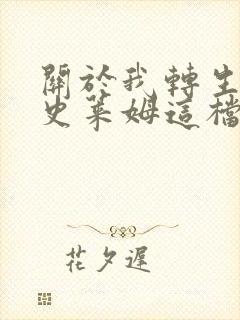 關於我轉生
史萊姆這檔
花夕遲